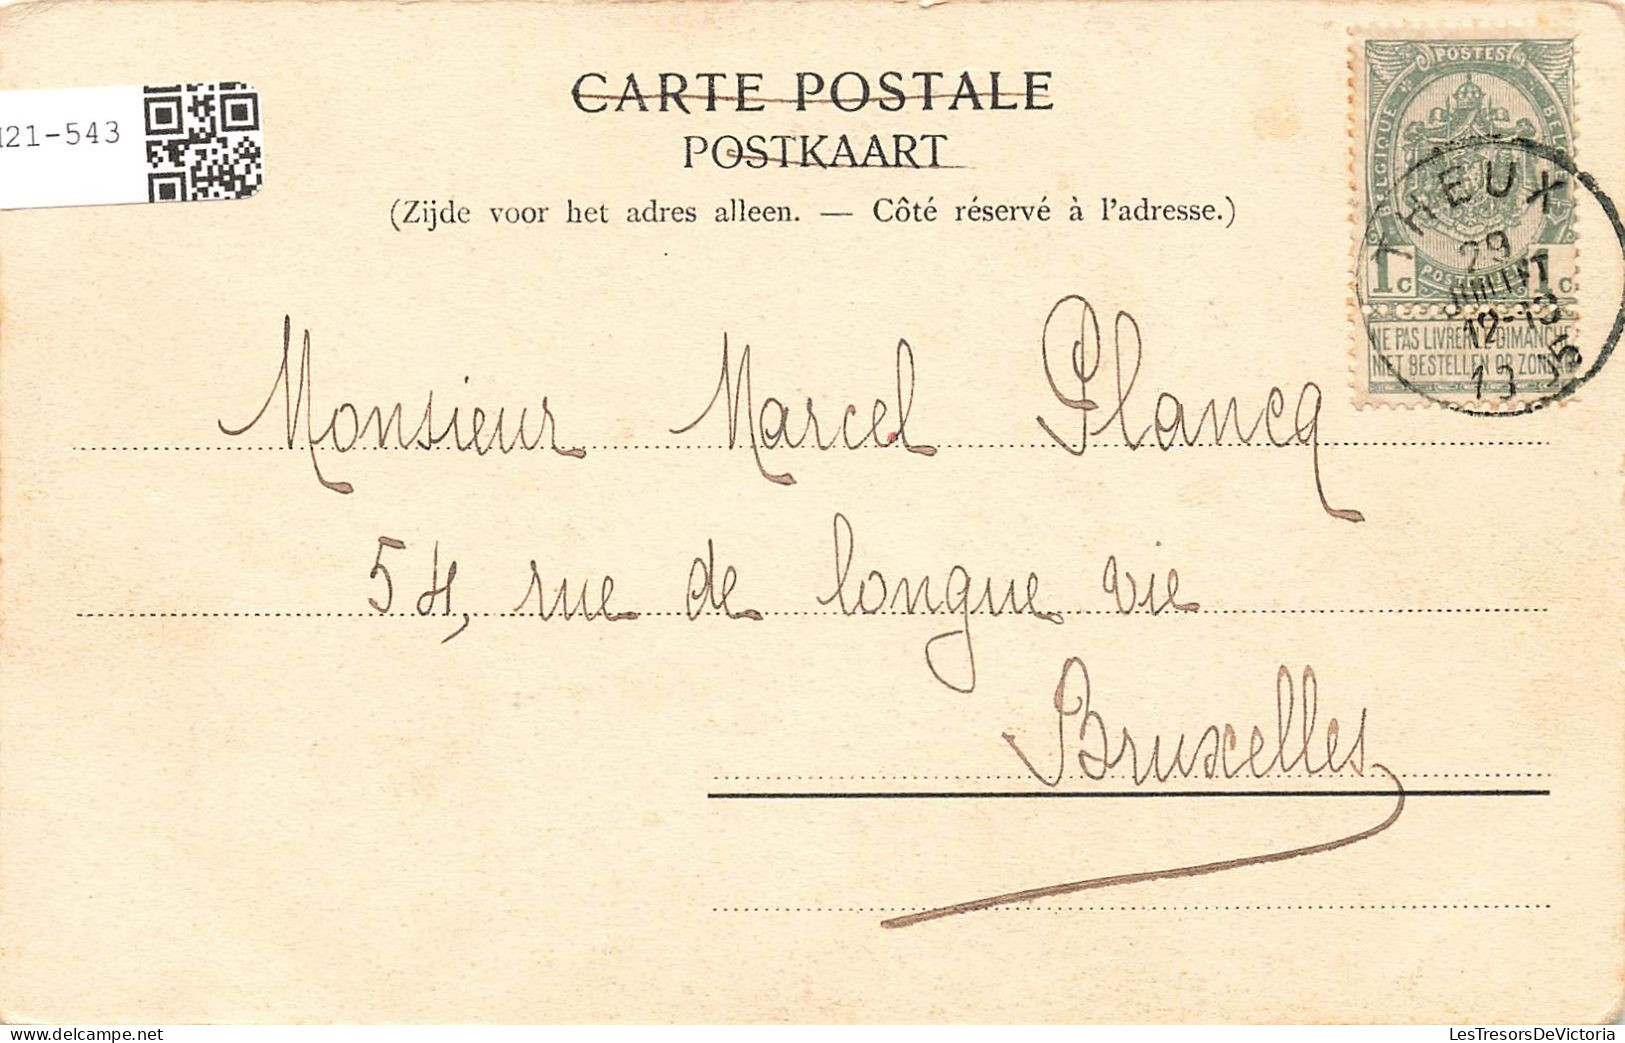 CARTE POSTALE
POSTKAART
(Zijde voor het adres alleen. — Côté réservé à l'adresse.)
21-543
POSTES
BELGIQUE
1c POSTERIJEN 1c
NE PAS LIVRER LE DIMANCHE
NIET BESTELLEN OP ZONDAG
THEUX
29
JUILLET
12-13
Monsieur Marcel Plancq
54, rue de longue vie
Bruxelles
LesTresorsDeVictoria
delcampe.net